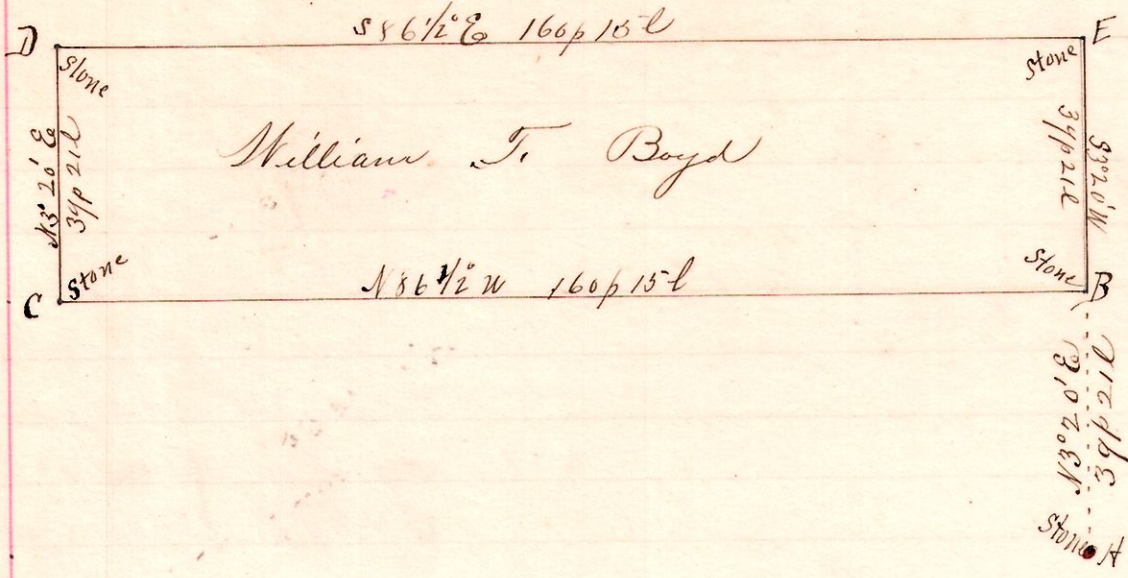 S 86 1/2° E 160p 15l
D
E
Stone
Stone
N3° 20' E
39p 21l
William T. Boyd
39p 21l
S3° 20' W
Stone
Stone
N 86 1/2° W 160p 15l
C
B
N3° 20' E
39p 21l
Stone
A